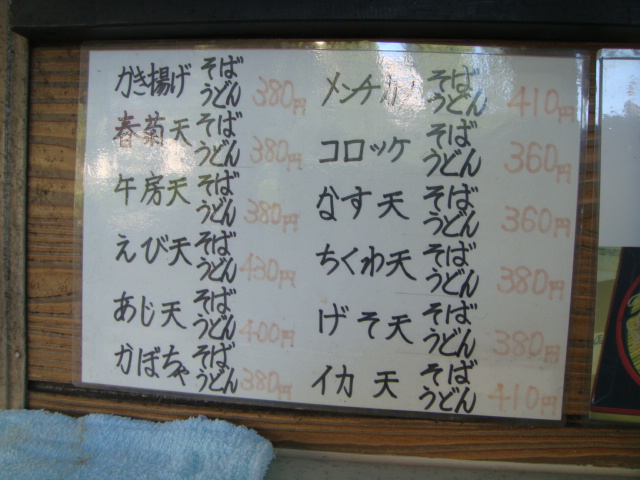 かき揚げ そば うどん 380円
春菊天 そば うどん 380円
午房天 そば うどん 380円
えび天 そば うどん 430円
あじ天 そば うどん 400円
かぼちゃ そば うどん 380円
メンチカツ そば うどん 410円
コロッケ そば うどん 360円
なす天 そば うどん 360円
ちくわ天 そば うどん 380円
げそ天 そば うどん 380円
イカ天 そば うどん 410円